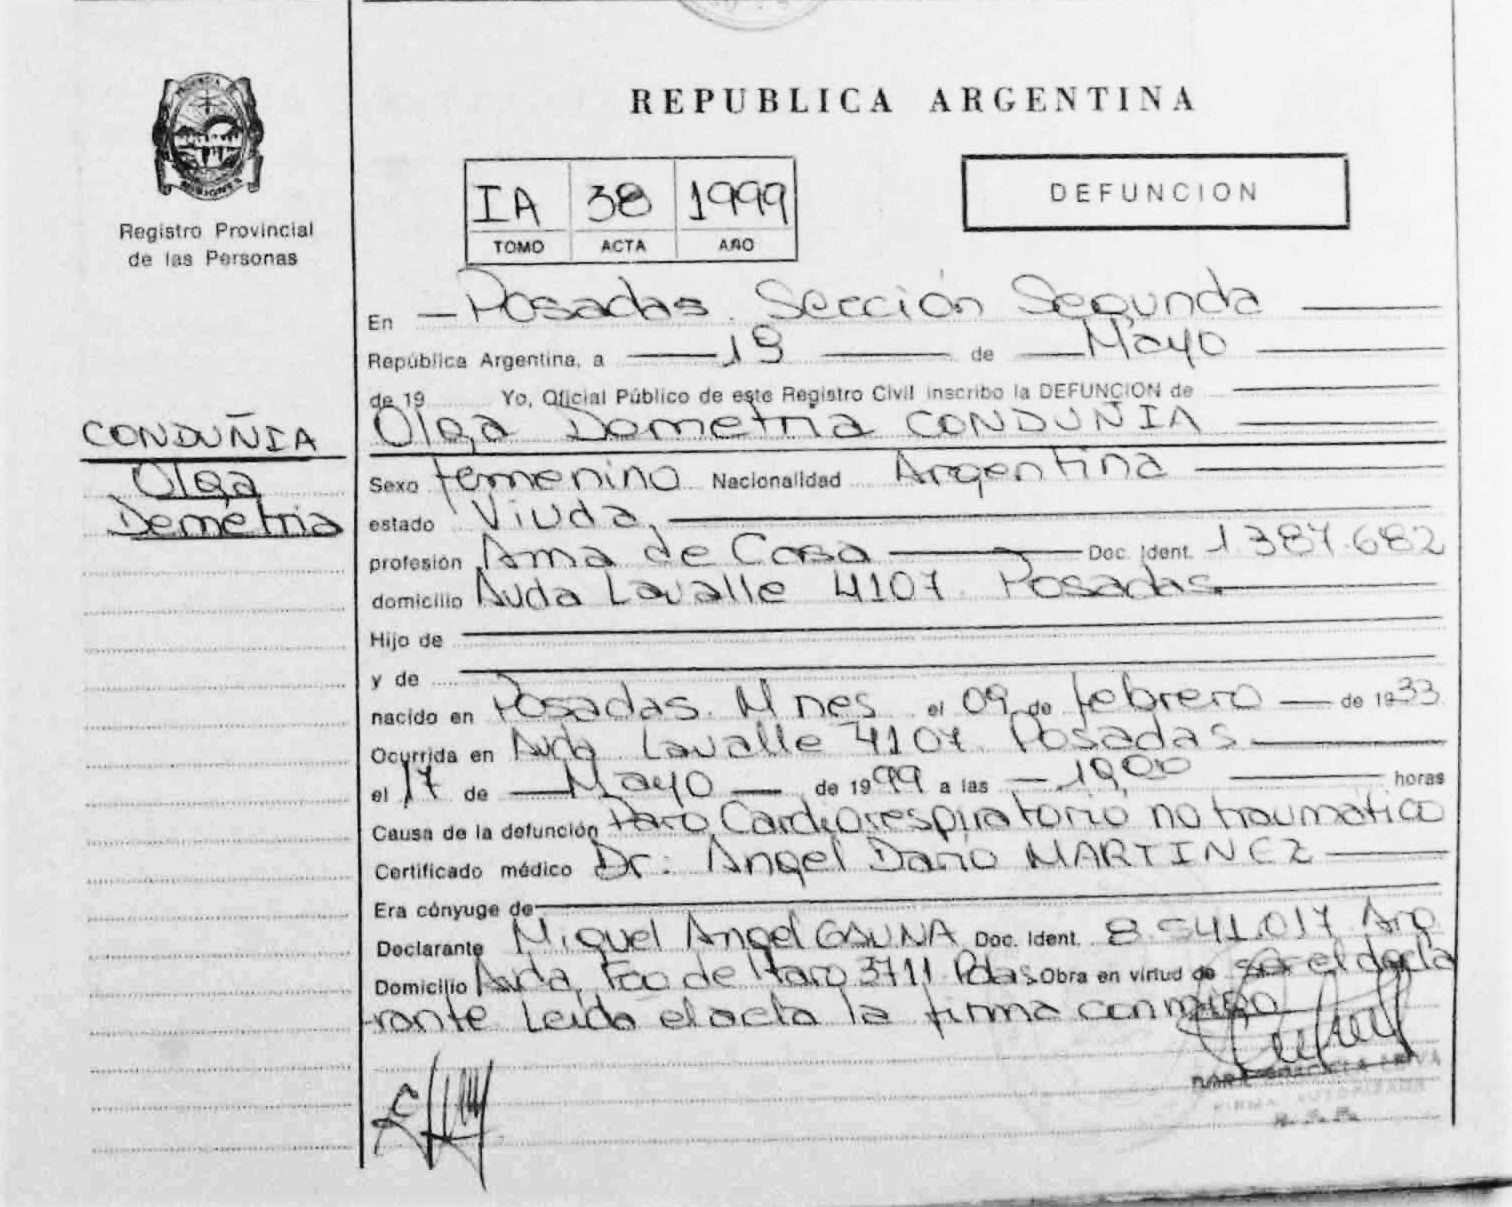 REPUBLICA ARGENTINA
MISIONES
Registro Provincial
de las Personas
IA 38 1999
TOMO ACTA AÑO
DEFUNCION
En Posadas. Sección Segunda
República Argentina, a 19 de Mayo
de 19 Yo, Oficial Público de este Registro Civil inscribo la DEFUNCION de
Olga Demetria CONDUÑIA
CONDUÑIA
Olga
Demetria
Sexo femenino Nacionalidad Argentina
estado Viuda,
profesión Ama de Casa Doc. Ident. 1.387.682
domicilio Avda Lavalle 4107. Posadas.
Hijo de
y de
nacido en Posadas. Mnes el 09 de febrero de 1933
Ocurrida en Avda Lavalle 4107. Posadas
el 17 de Mayo de 1999 a las 19,00 horas
Causa de la defunción Paro Cardiorespiratorio no traumático
Certificado médico Dr: Angel Dario MARTINEZ
Era cónyuge de
Declarante Miguel Angel OSUNA Doc. Ident. 8.541.017 Arg
Domicilio Avda. Fco de Haro 3711 Pdas. Obra en virtud de ser el decla
rante Leida el acta la firma conmigo
FIRMA AUTORIZADA